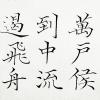 萬戶侯
到中流
遏飛舟